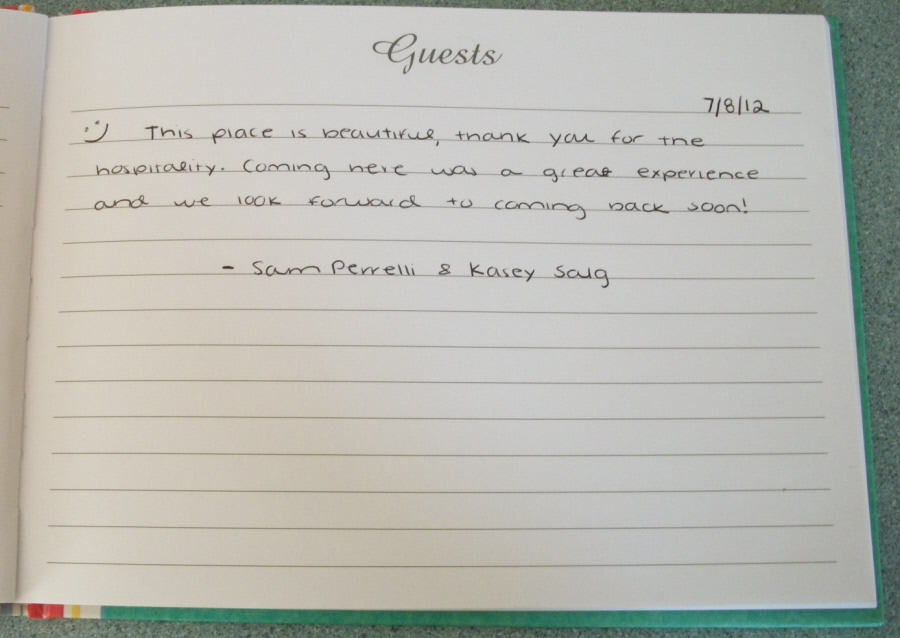 Guests
7/8/12
:) This place is beautiful, thank you for the
hospitality. Coming here was a great experience
and we look forward to coming back soon!
- Sam Perrelli & Kasey Salg